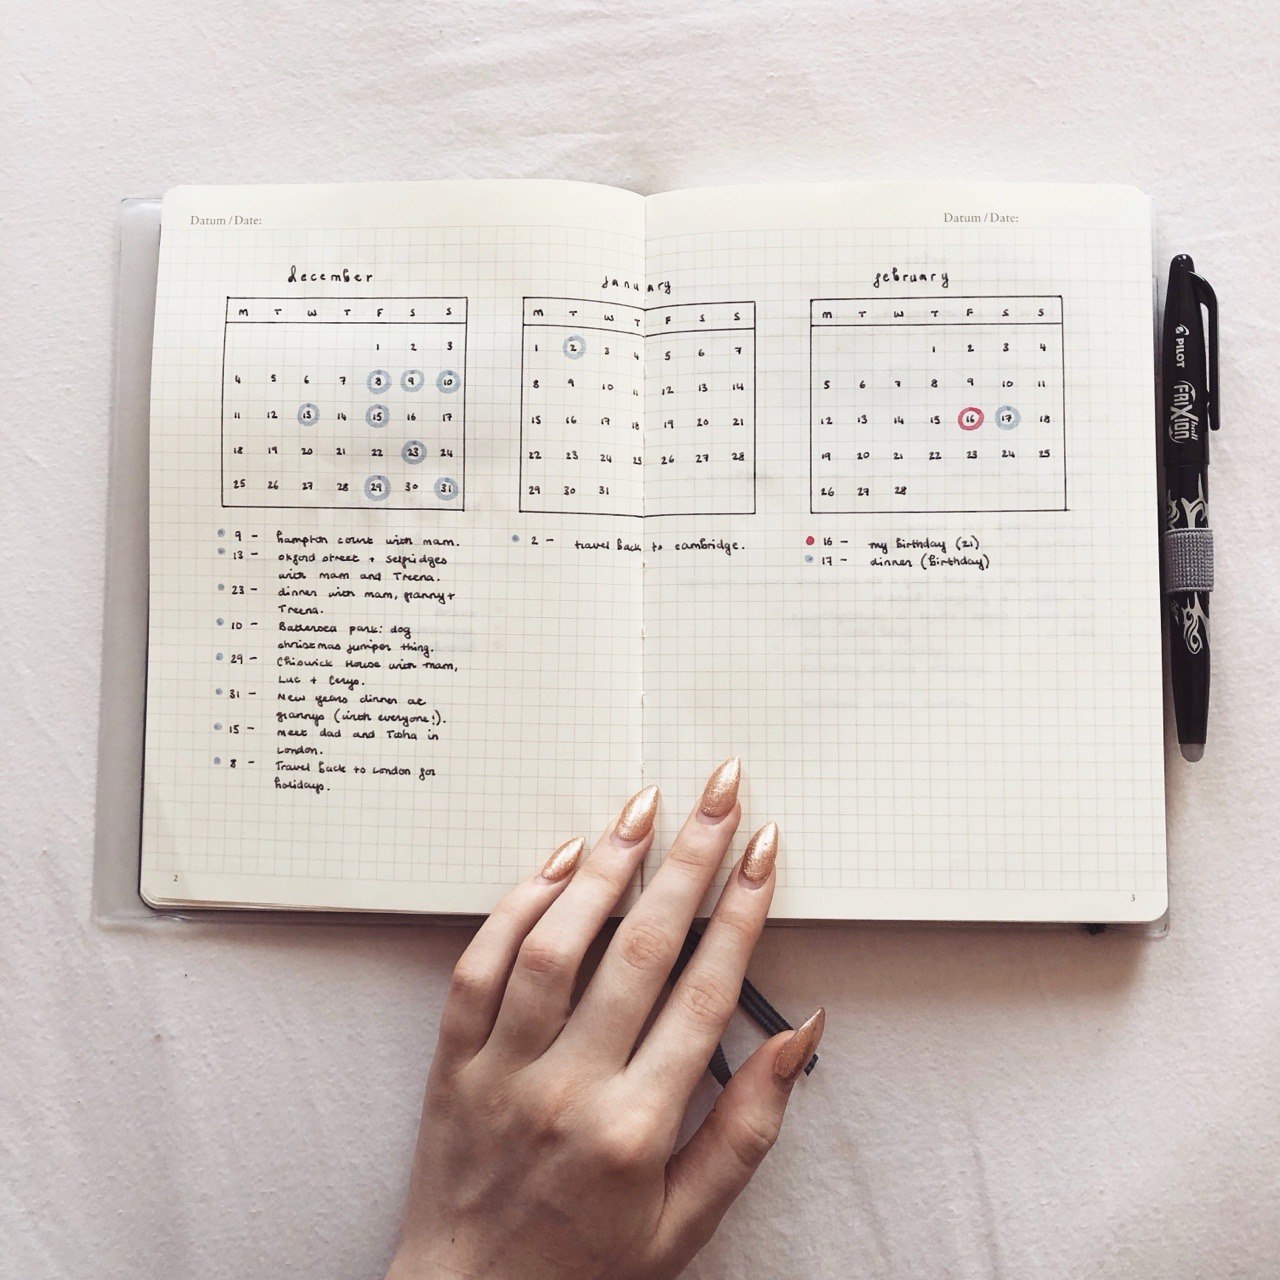 Datum / Date:
Datum / Date:
december
M T W T F S S
1 2 3
4 5 6 7 8 9 10
11 12 13 14 15 16 17
18 19 20 21 22 23 24
25 26 27 28 29 30 31
9 - hampton court with mam.
13 - oxford street + selfridges
with mam and Treena.
23 - dinner with mam, granny +
Treena.
10 - Battersea park: dog
christmas jumper thing.
29 - Chiswick House with mam,
Luc + Cerys.
31 - New years dinner at
grannys (with everyone!).
15 - meet dad and Tasha in
London.
8 - Travel back to London for
holidays.
january
M T W T F S S
1 2 3 4 5 6 7
8 9 10 11 12 13 14
15 16 17 18 19 20 21
22 23 24 25 26 27 28
29 30 31
2 - travel back to cambridge.
february
M T W T F S S
1 2 3 4
5 6 7 8 9 10 11
12 13 14 15 16 17 18
19 20 21 22 23 24 25
26 27 28
16 - my birthday (21)
17 - dinner (birthday)
2
3
PILOT
FRIXION
ball